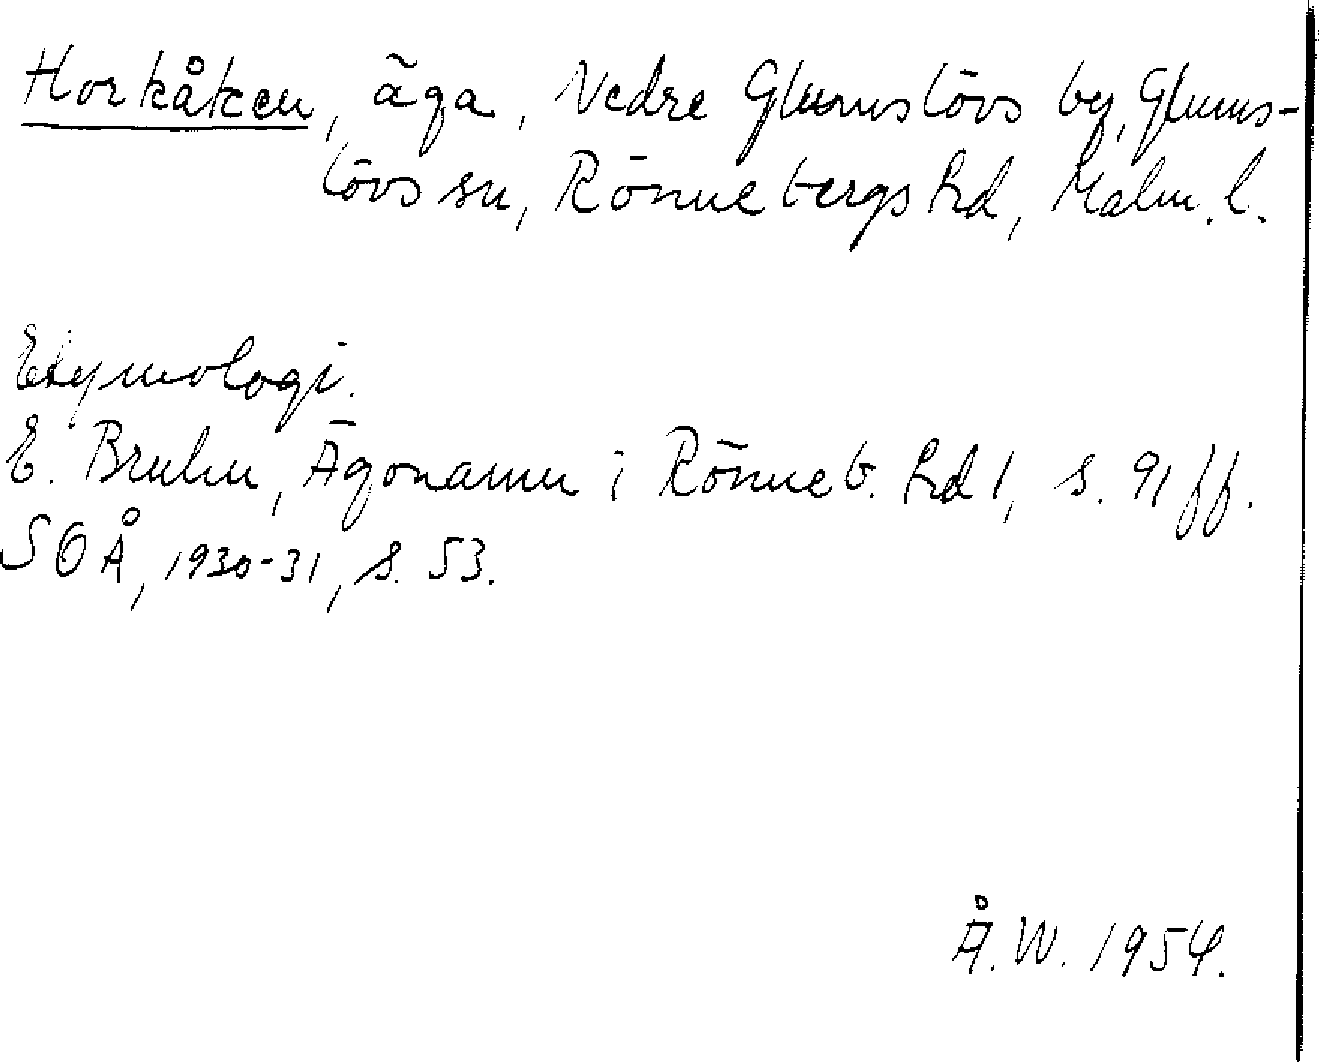 Horkåken, äga, Nedre Glumslövs by, Glums-
lövs sn, Rönnebergs hd, Malm. l.
Etymologi.
E. Bruhn, Ägonamn i Rönneb. hd 1, s. 91 ff.
SOÅ, 1930-31, s. 53.
Å. W. 1954.